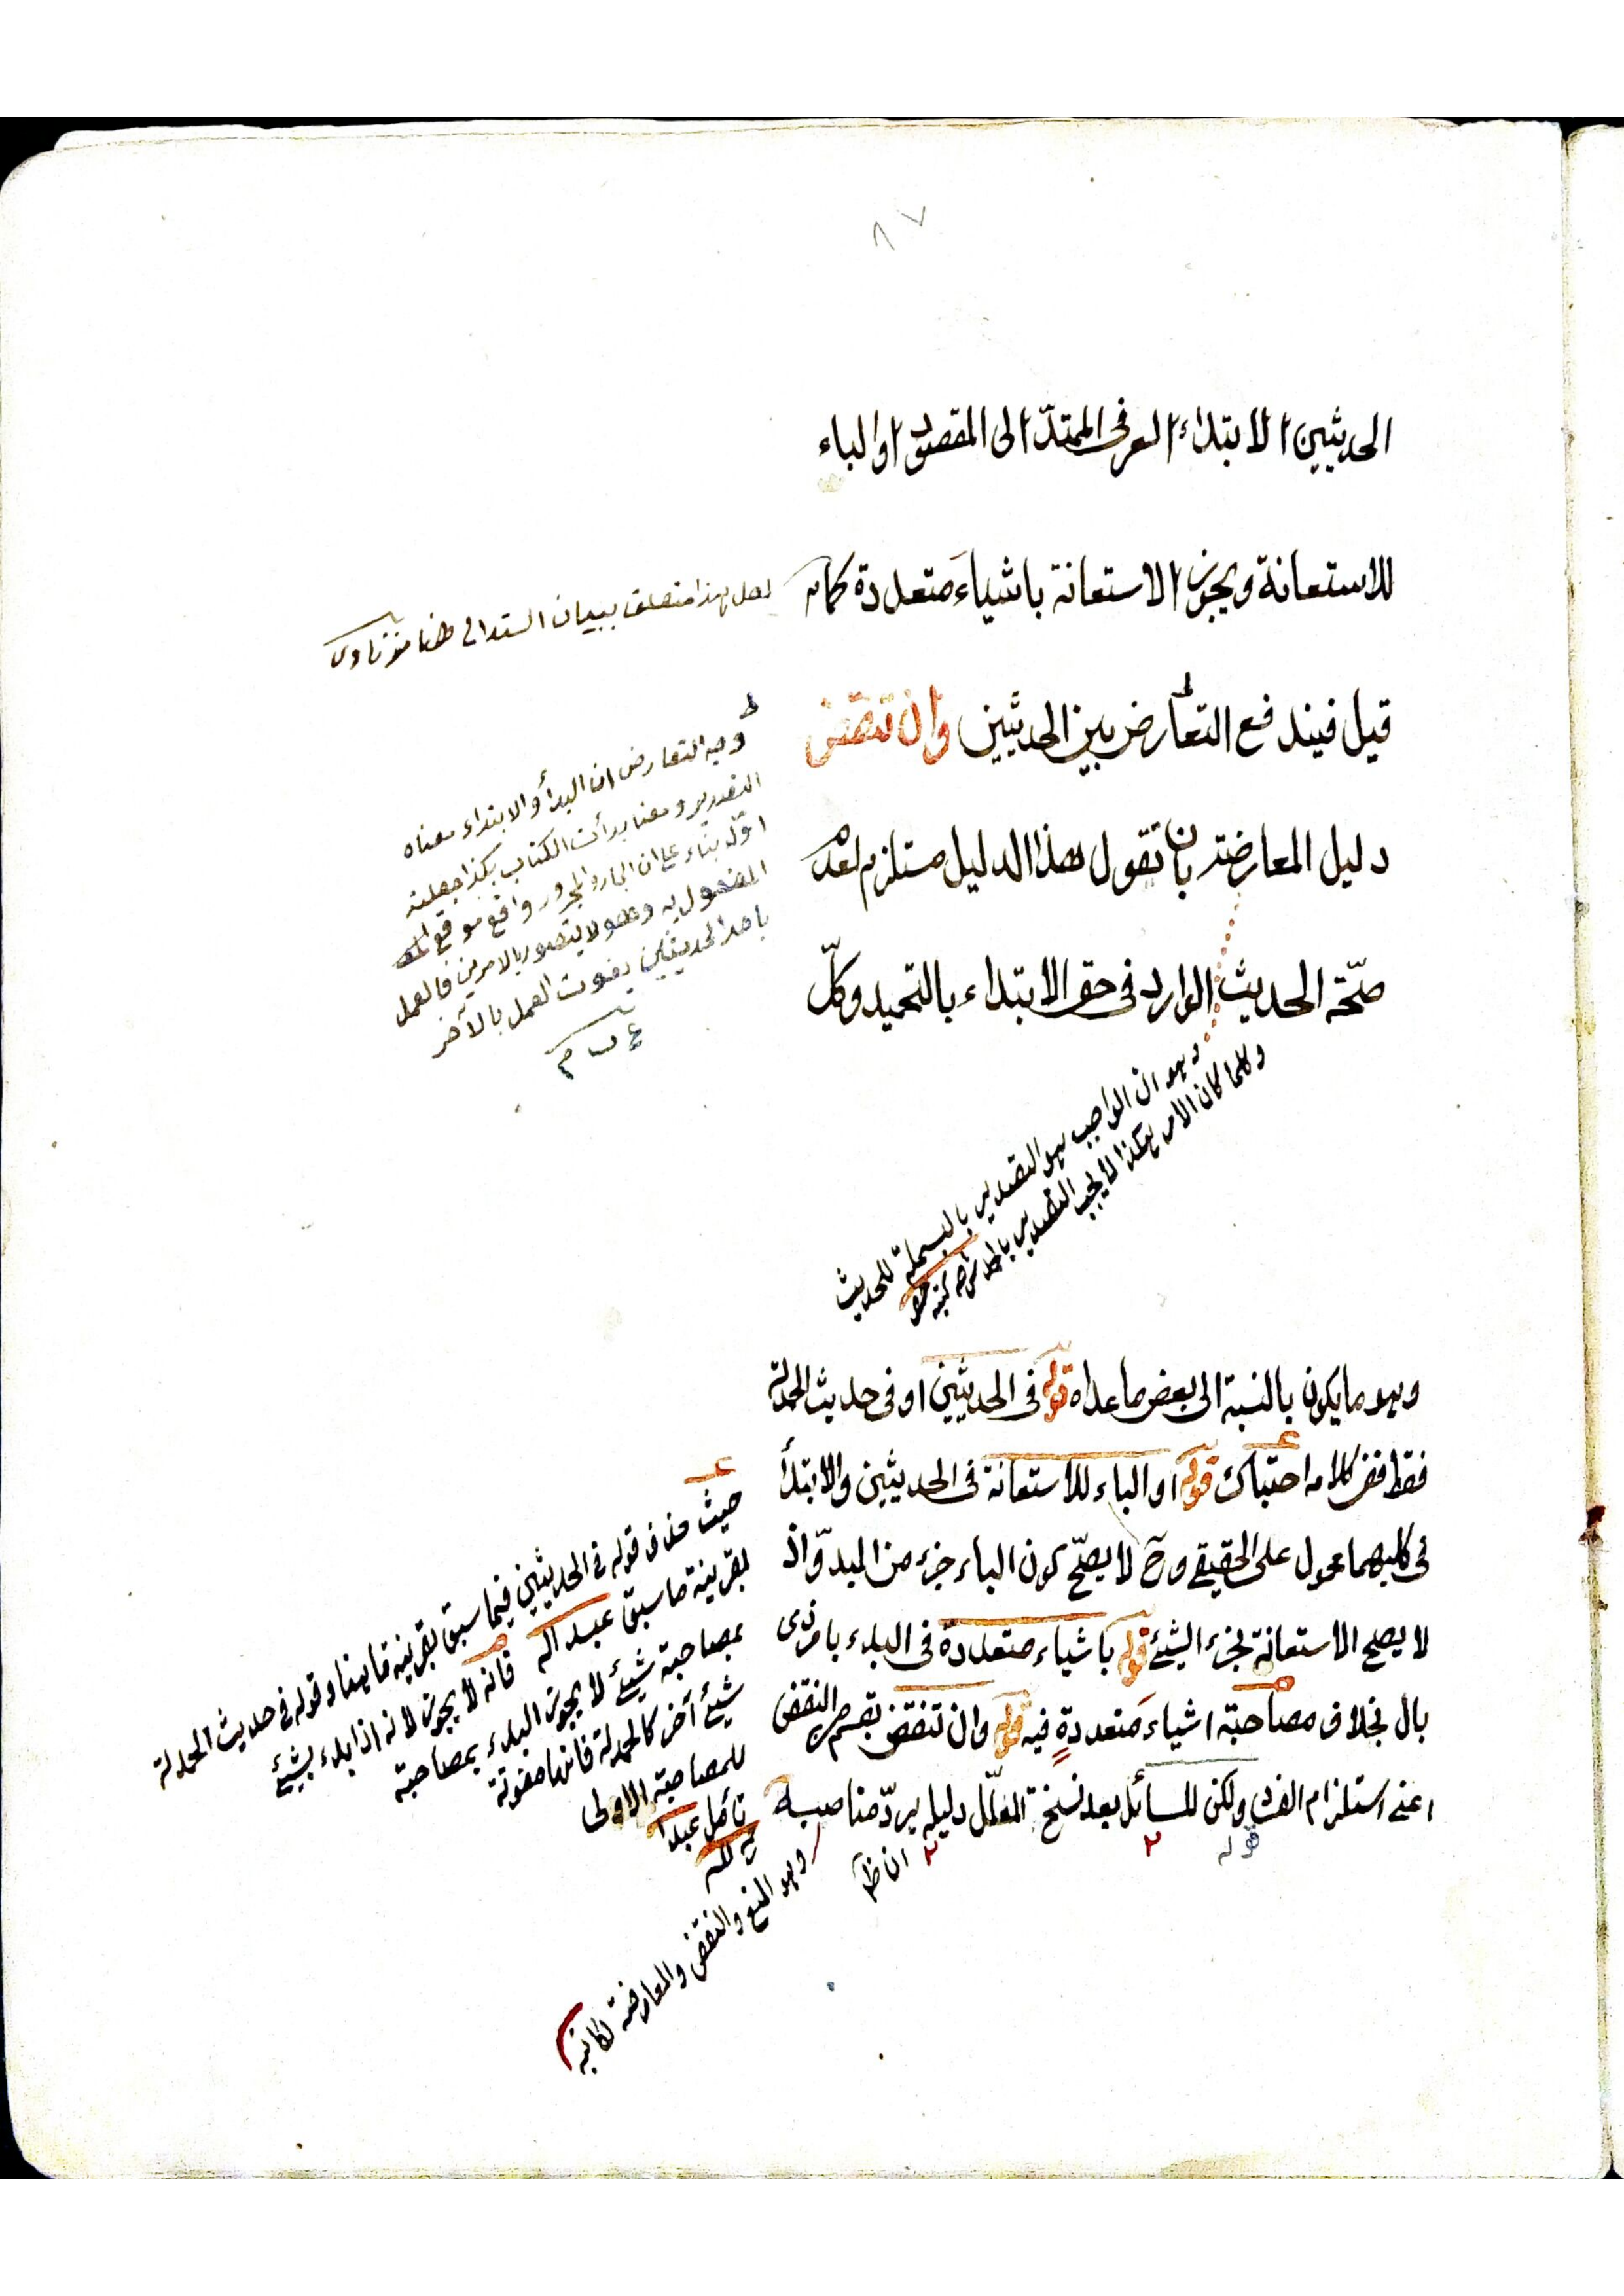 ٨٧
الحديثين الابتداء العرفى الممتدّ الى المقصود او الباء
للاستعانة ويجوز الاستعانة باشياءَ متعددة كما
قيل فيندفع التعارض بين الحديثين وان تنقض
دليل المعارضة بان تقول هذا الدليل مستلزم لعدم
صحّة الحديث الوارد فى حق الابتداء بالتحميد وكلّ
لعل هذا متعلق ببيان السند
وجه التعارض ان البدأ والابتداء معناه
التصدير ومعنا بدأت الكتاب بكذا جعلته
اوّله بناء على ان الجار والمجرور واقع موقع
المفعول به وهو لا يتصور بالامرين فالعمل
باحد الحديثين يفوت العمل بالآخر
ع ب م
وهو ان الواجب هو التصدير بالبسملة للحديث
وكلما كان الامر هكذا لا يجب التصدير بالحمد
وهو ما يكون بالنسبة الى بعض ما عداه قوله فى الحديثين او فى حديث الحمدلة
فقط ففى كلامه احتباك قوله او الباء للاستعانة فى الحديثين والابتدأ
فى كليهما محمول على الحقيقى وح لا يصحّ كون الباء جزء من المبدوّ اذ
لا يصح الاستعانة بجزء الشيئ قوله باشياء متعددة فى البدء بامر ذى
بال بخلاف مصاحبة اشياءَ متعددةٍ فيه قوله وان تنقض بقسم النقض
اعنى استلزام الفساد ولكن للسائل بعد نسخة المعلّل دليله يردّ مناصبه
قوله
ان ظ
حيث حذف قوله فى الحديثين فيما سبق بقرينة ما هنا وقوله فى حديث الحمدلة
بقرينة ما سبق عبد الله
فانه لا يجوز لانه اذا بدء بشيئ
بمصاحبة شيئ لا يجوز البدء بمصاحبة
شيئ آخر كالحمدلة فانها مفوتة
للمصاحبة الاولى
تأمل عبد
الله
وهو المنع والنقض والمعارضة لكاتبه